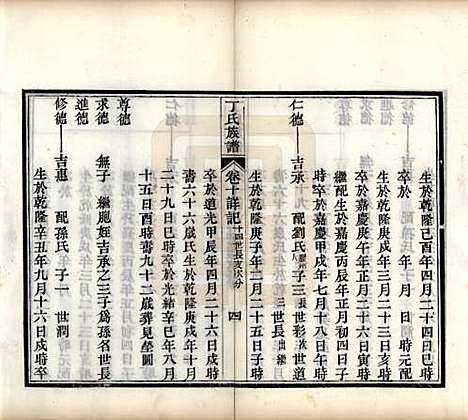 生於乾隆己酉年四月二十四日巳時
卒於　年　月　日　時元配
生於乾隆庚戌年三月二十三日亥時
卒於嘉慶庚午年正月二十六日寅時
繼配生於嘉慶丙辰年正月初四日子
時卒於嘉慶甲戌年七月十八日午時
仁德——吉承　配劉氏　子三　世彩　世道　世長出繼
生於乾隆庚子年二月二十五日子時
丁氏族譜　卷十詳記　四
卒於道光甲辰年四月二十六日戌時
壽六十六歲氏生於乾隆庚戌年十月
二十九日巳時卒於光緒辛巳年八月
十五日酉時壽九十二歲葬見塋圖
尊德
求德　無子　繼胞姪吉承之三子爲孫名世長
進德
修德——吉惠　配孫氏　子一　世潤
生於乾隆辛丑年九月十六日戌時卒